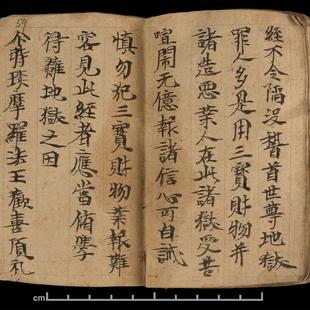 經不令陷没稽首世尊地獄
罪人多是用三寳財物并
諸造悪業人在此諸獄受苦
喧鬧无億報諸信心可自誡
慎勿犯三寳財物業報難
容見此經者應當脩學
得離地獄之因
尒時琰摩羅法王歡喜頂礼
59
cm